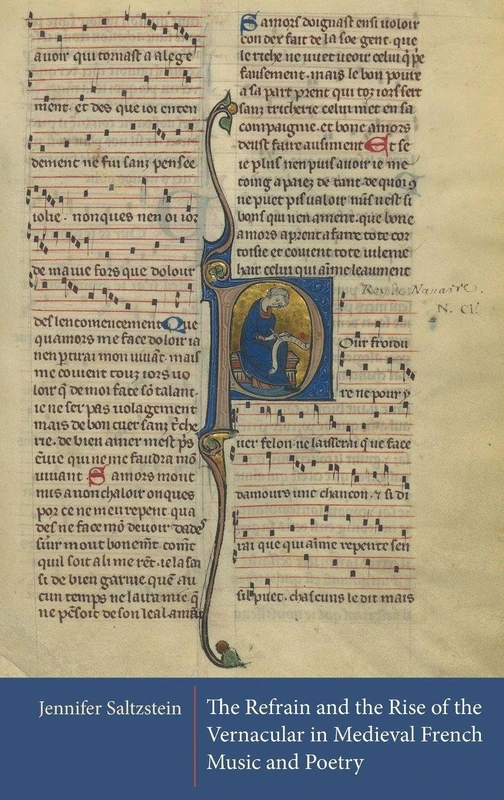 auoir qui tornast a alege
ment. et des que ioi enten
dement ne fui sanz pensee
iolie. nonques nen oi ior
de ma uie fors que dolour
des lencomencement Que
quamors me face doloir ia
nen partirai mon uiuant. mais
me couient touz iors uo
loir de moi face talant.
ie ne ser pas uolagement
mais de bon cuer sanz
rie. de bien amer mest
que ui ne me faudra
uiuant. Samors mont
mis a nonchaloir onques
por ce ne me uerepent qua
des ne face devoir
mout
quil soit ali me rent. ie la sai
si de bien garnie. au
cun temps ne laura mie
ne de son leal
Samors doignast ensi uoloir
con der fait de la soe gent. que
le riche ne uuet ueoir celui
fausement. mais le bon poure
a sa part prent qui toz iors sert
sanz tricherie celui met en sa
compaignie. et bone amors
deust faire ausiment Et se
ie plus nen puis auoir ie me
toing a paiez de tant. de quoi
ne puet pis ualoir nus nest si
bons qui nen ament. que bone
amors aprent a faire tote cor
toisie et couient tote uilenie
hair celui qui aime leaument
Roy de Navarre.
Our froidu
re ne pour y
uer felon ne lausserai que face
damours une chancon. & si di
rai que qui aime repente sen
puet. chascuns le dit mais
Jennifer Saltzstein
The Refrain and the Rise of the
Vernacular in Medieval French
Music and Poetry